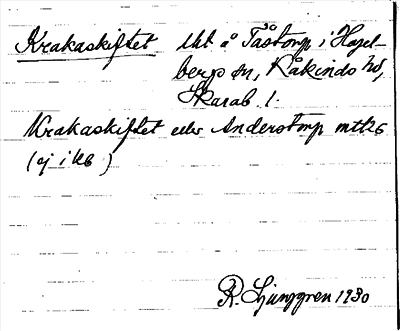 Krakaskiftet tht å Tåstorp i Hagel-
bergs sn, Kåkinds hd,
Skarab. l.
Krakaskiftet eller Anderstorp mtl 26
(ej i kb)
R. Ljunggren 1930